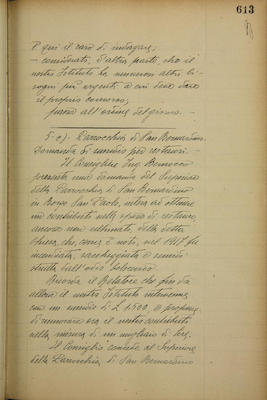 613
è qui il caso di indagare;
- considerato, d'altra parte che il
nostro Istituto ha numerosi altri bi-
sogni più urgenti a cui deve dare
il proprio concorso;
passa all'ordine del giorno.
5-o) - Parrocchia di San Bernardino.
Domanda di sussidio per restauri.
Il Consigliere Ing.
presenta una domanda del Superiore
della Parrocchia di San Bernardino
in Borgo San Paolo, intesa ad ottenere
un contributo nella spesa di restauro,
ancora non ultimato, della detta
Chiesa, che, com'è noto, nel 1917 fu
incendiata, saccheggiata e semidi-
strutta dall'odio bolscevico.
Ricorda il Relatore che fin da
allora il nostro Istituto intervenne
con un sussidio di L. 1.500, e propone
di rinnovare ora il nostro contributo
nella misura di un migliaio di lire.
Il Consiglio concede al Superiore
della Parrocchia di San Bernardino